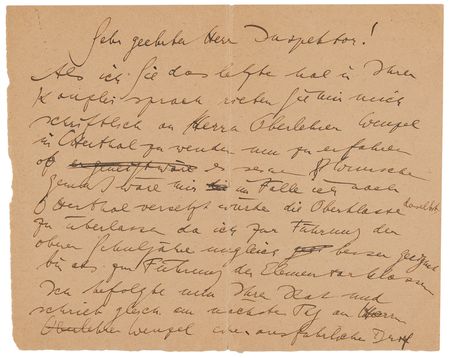 Sehr geehrter Herr Inspektor!
Als ich Sie das letzte Mal in Ihrer
Kanzlei sprach rieten Sie mir mich
schriftlich an Herrn Oberlehrer Wenzel
in Otterthal zu wenden um zu erfahren
ob er seinen Wünschen
gemäß wäre mir im Falle ich nach
Otterthal versetzt würde die Oberklasse daselbst
zu überlassen da ich zur Führung der
oberen Schuljahre ungleich besser geeignet
bin als zur Führung der Elementarklassen
Ich befolgte nun Ihren Rat und
schrieb gleich am nächsten Tag an Herrn
Oberlehrer Wenzel einen ausführlichen Brief